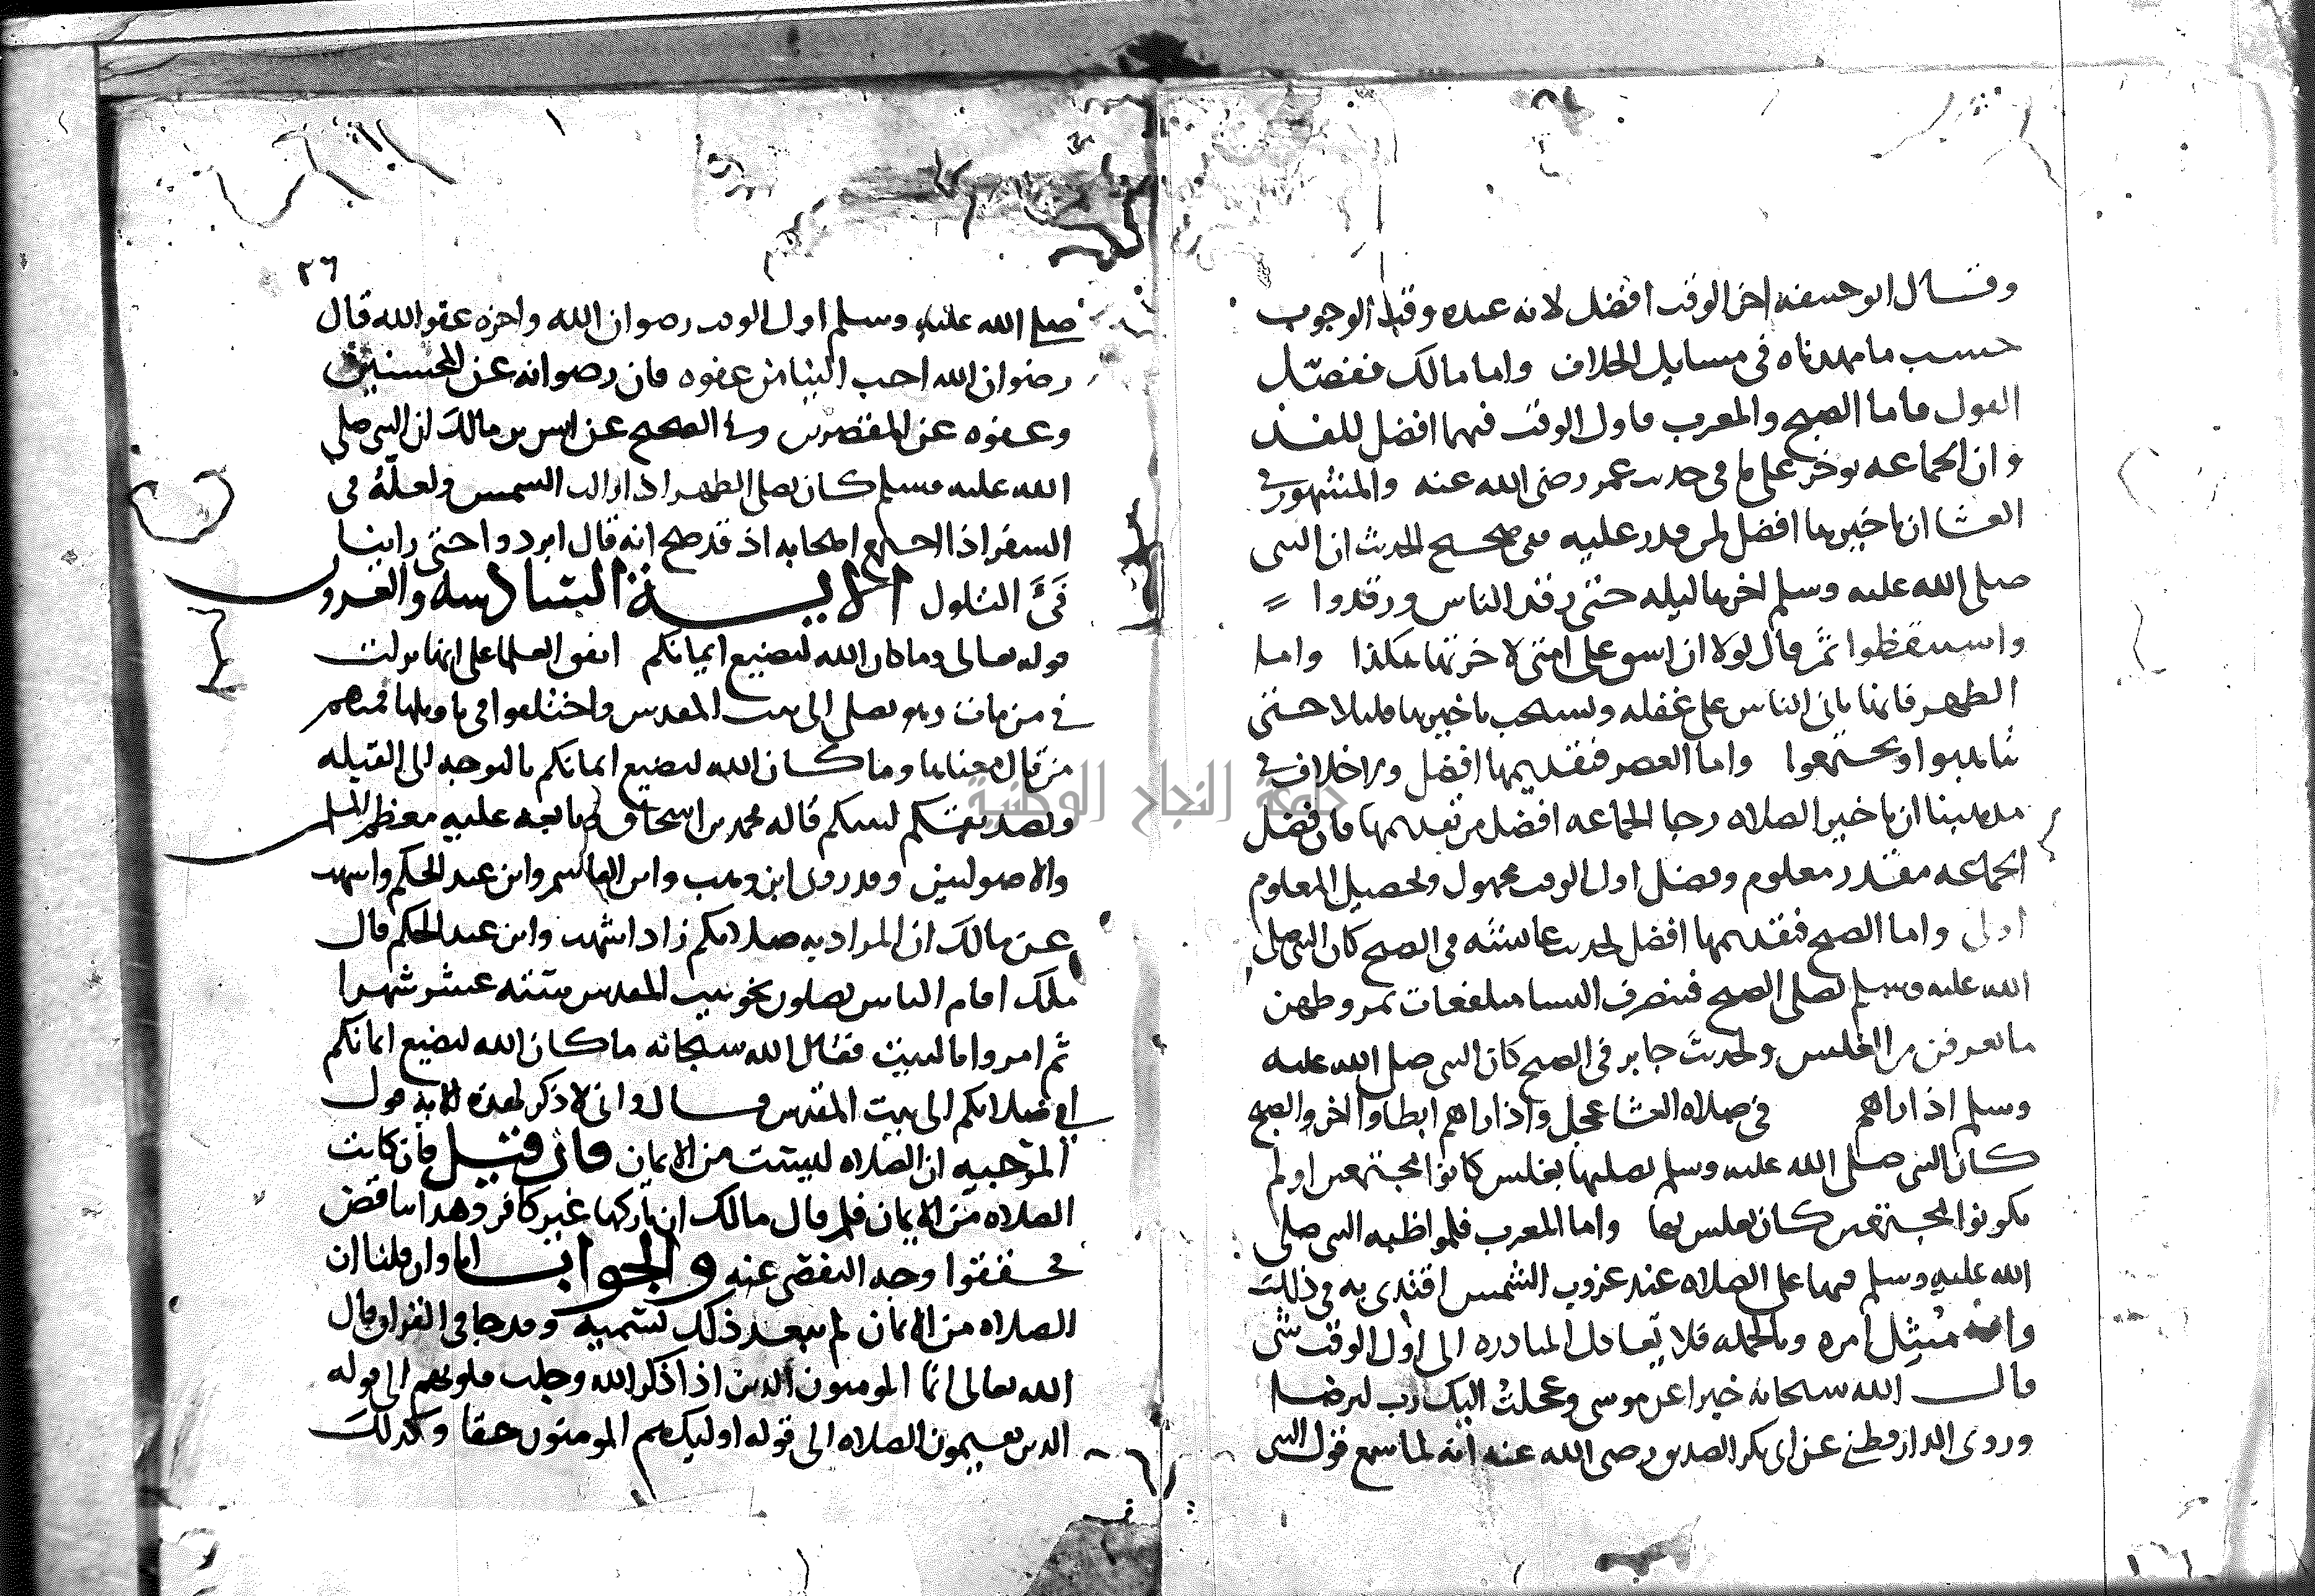 وقال ابو حنيفه اخر الوقت افضل لانه عنده وقت الوجوب
حسب ما مهدناه في مسايل الخلاف واما مالك ففصل
القول فاما الصبح والمغرب فاول الوقت فيهما افضل للفذ
وان الجماعه توخر على ما في حديث عمر رضى الله عنه والمشهور في
العشا ان تاخيرها افضل لمن قدر عليه ففي صحيح الحديث ان النبي
صلى الله عليه وسلم اخرها ليله حتى رقد الناس ورقدوا
واستيقظوا ثم قال لولا ان اشق على امتى لاخرتها هكذا واما
الظهر فانها تاتى الناس على غفله ويستحب تاخيرها قليلا حتى
يتاهبوا ويجتمعوا واما العصر فتقديمها افضل ولا خلاف في
مذهبنا ان تاخير الصلاه رجا الجماعه افضل من تقديمها فان فضل
الجماعه مقدر معلوم وفضل اول الوقت مجهول وتحصيل المعلوم
اولى واما الصبح فتقديمها افضل لحديث عائشه في الصبح كان النبي صلى
الله عليه وسلم يصلى الصبح فينصرف النسا متلفعات بمروطهن
ما يعرفن من الغلس ولحديث جابر في الصبح كان النبي صلى الله عليه
وسلم اذا راهم في صلاه العشا عجل واذا راهم ابطاوا اخر والصبح
كان النبي صلى الله عليه وسلم يصليها بغلس كانوا مجتمعين او لم
يكونوا مجتمعين كان يغلس بها واما المغرب فلمواظبه النبي صلى
الله عليه وسلم فيها على الصلاه عند غروب الشمس اقتدى به في ذلك
وامتثل امره وبالجمله فلا يعادل المبادره الى اول الوقت شى
قال الله سبحانه خبرا عن موسى وعجلت اليك رب لترضا
وروى الدارقطني عن ابي بكر الصديق رضى الله عنه انه لما سمع قول النبي
٢٦
صلى الله عليه وسلم اول الوقت رضوان الله واخره عفو الله قال
رضوان الله احب الينا من عفوه فان رضوانه عن المحسنين
وعفوه عن المقصرين وفي الصحيح عن انس بن مالك ان النبي صلى
الله عليه وسلم كان يصلى الظهر اذا زالت الشمس ولعله في
السفر اذا اجتمع اصحابه اذ قد صح انه قال ابردوا حتى راينا
فىء التلول الايه السادسه والعشرون
قوله تعالى وما كان الله ليضيع ايمانكم اتفق العلما على انها نزلت
في من مات وهو يصلى الى بيت المقدس واختلفوا في تاويلها فمنهم
من قال معناها وما كان الله ليضيع ايمانكم بالتوجه الى القبله
وتصديقكم لنبيكم قاله محمد بن اسحاق وتابعه عليه معظم المتكلمين
والاصوليين وقد روى ابن وهب وابن القاسم وابن عبد الحكم واشهب
عن مالك ان المراد به صلاتكم زاد اشهب وابن عبد الحكم قال
ملك اقام الناس يصلون نحو بيت المقدس ستته عشر شهرا
ثم امروا بالبيت فقال الله سبحانه ما كان الله ليضيع ايمانكم
اي صلاتكم الى بيت المقدس قال واني لاذكر بهذه الايه قول
المرجيه ان الصلاه ليست من الايمان فان قيل فان كانت
الصلاه من الايمان فلم قال مالك ان تاركها غير كافر وهذا تناقض
فحققوا وجه التفصي عنه والجواب انا وان قلنا ان
الصلاه من الايمان لم يبعد ذلك تسميه وقد جا في القران قال
الله تعالى انما المومنون الذين اذا ذكر الله وجلت قلوبهم الى قوله
الذين يقيمون الصلاه الى قوله اوليك هم المومنون حقا وكذلك
جامعة النجاح الوطنية